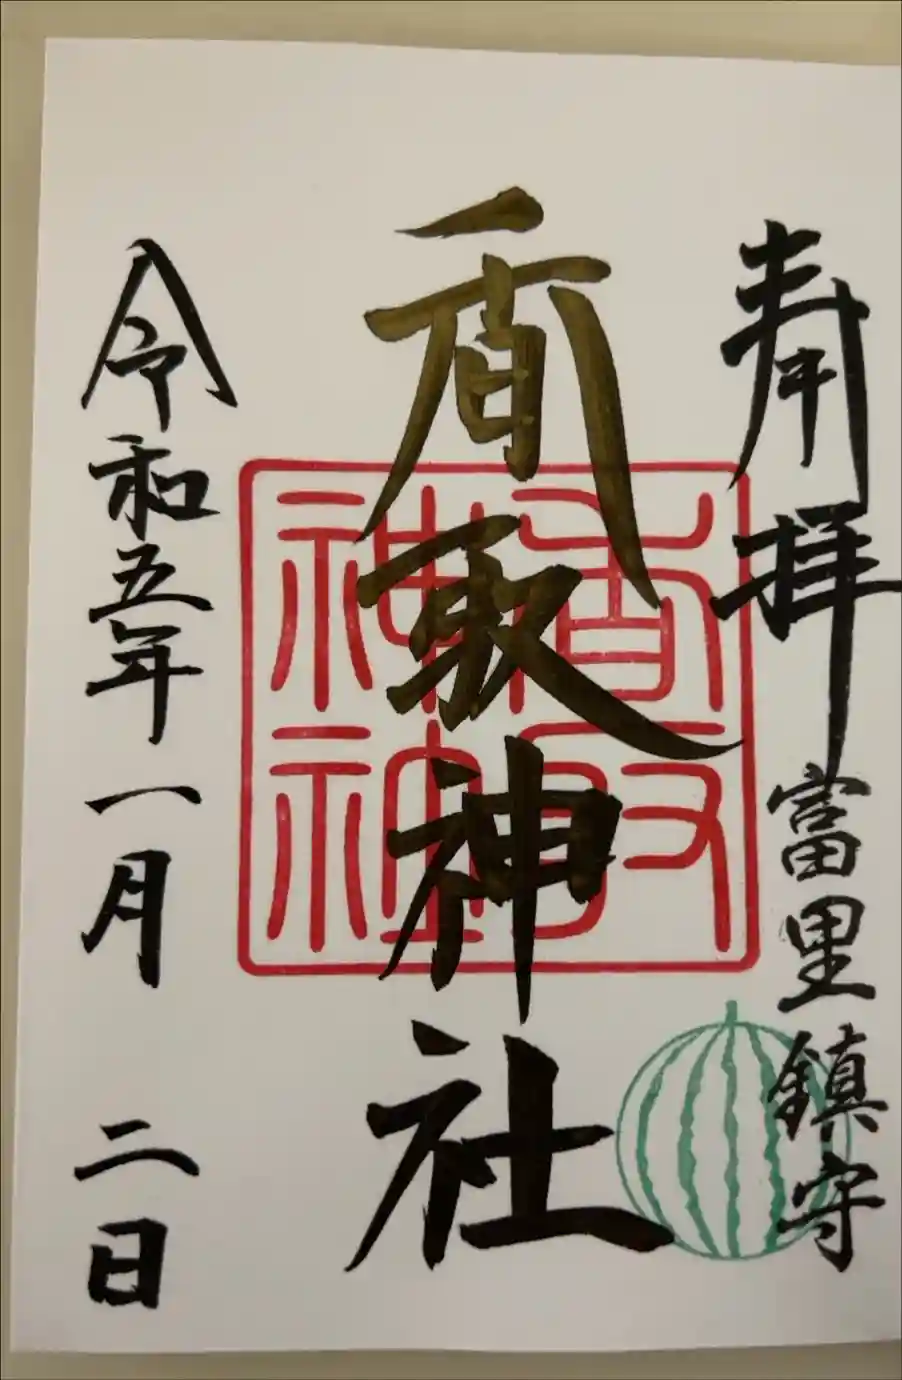 奉拝
富里鎮守
香取神社
香取
神社
令和五年一月二日